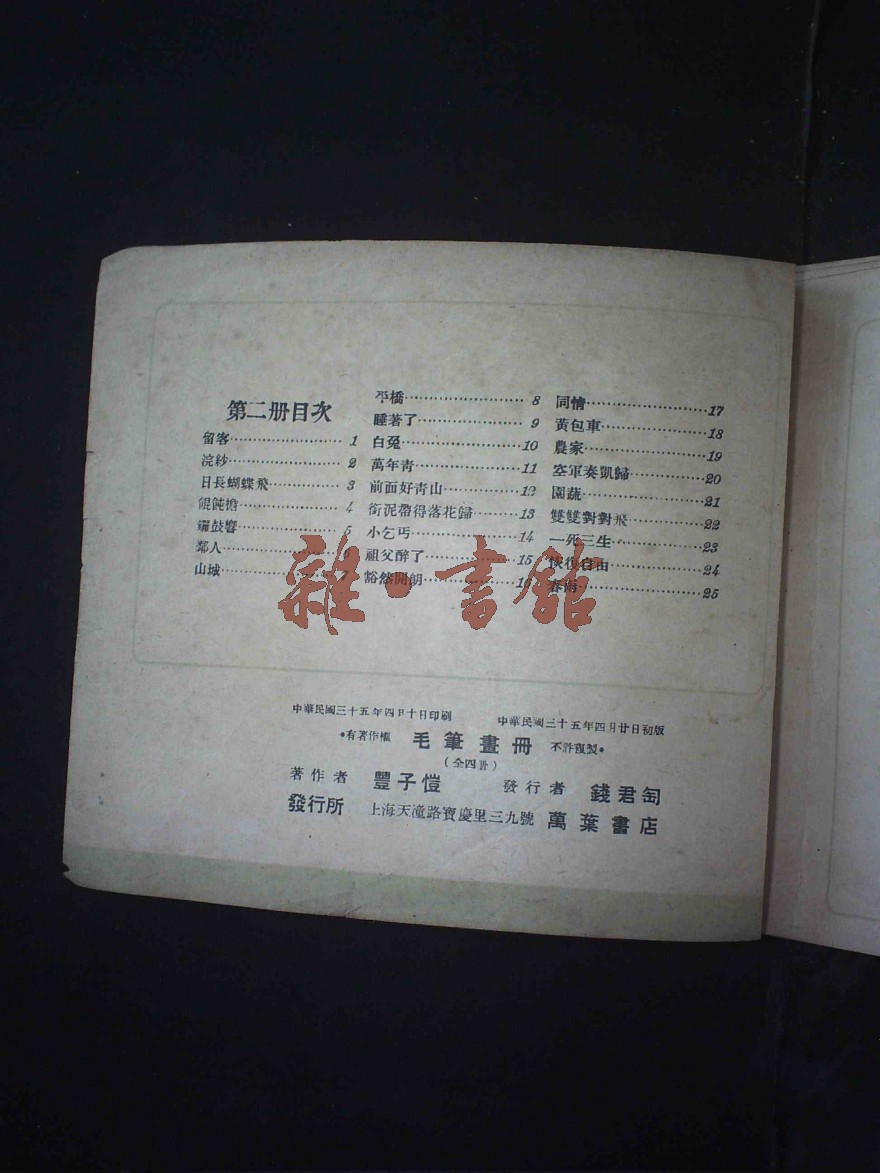 第二册目次
留客 1
浣紗 2
日長蝴蝶飛 3
餛飩擔 4
鑼鼓響 5
鄰人 6
山城 7
平橋 8
睡著了 9
白兔 10
萬年青 11
前面好青山 12
銜泥帶得落花歸 13
小乞丐 14
祖父醉了 15
豁然開朗 16
同情 17
黃包車 18
農家 19
空軍奏凱歸 20
園蔬 21
雙雙對對飛 22
一死三生 23
恢復自由 24
春雨 25
雜·書館
中華民國三十五年四月十日印刷 中華民國三十五年四月廿日初版
•有著作權 毛筆畫冊 不許複製•
(全四冊)
著作者 豐子愷 發行者 錢君匋
發行所 上海天潼路寶慶里三九號 萬葉書店